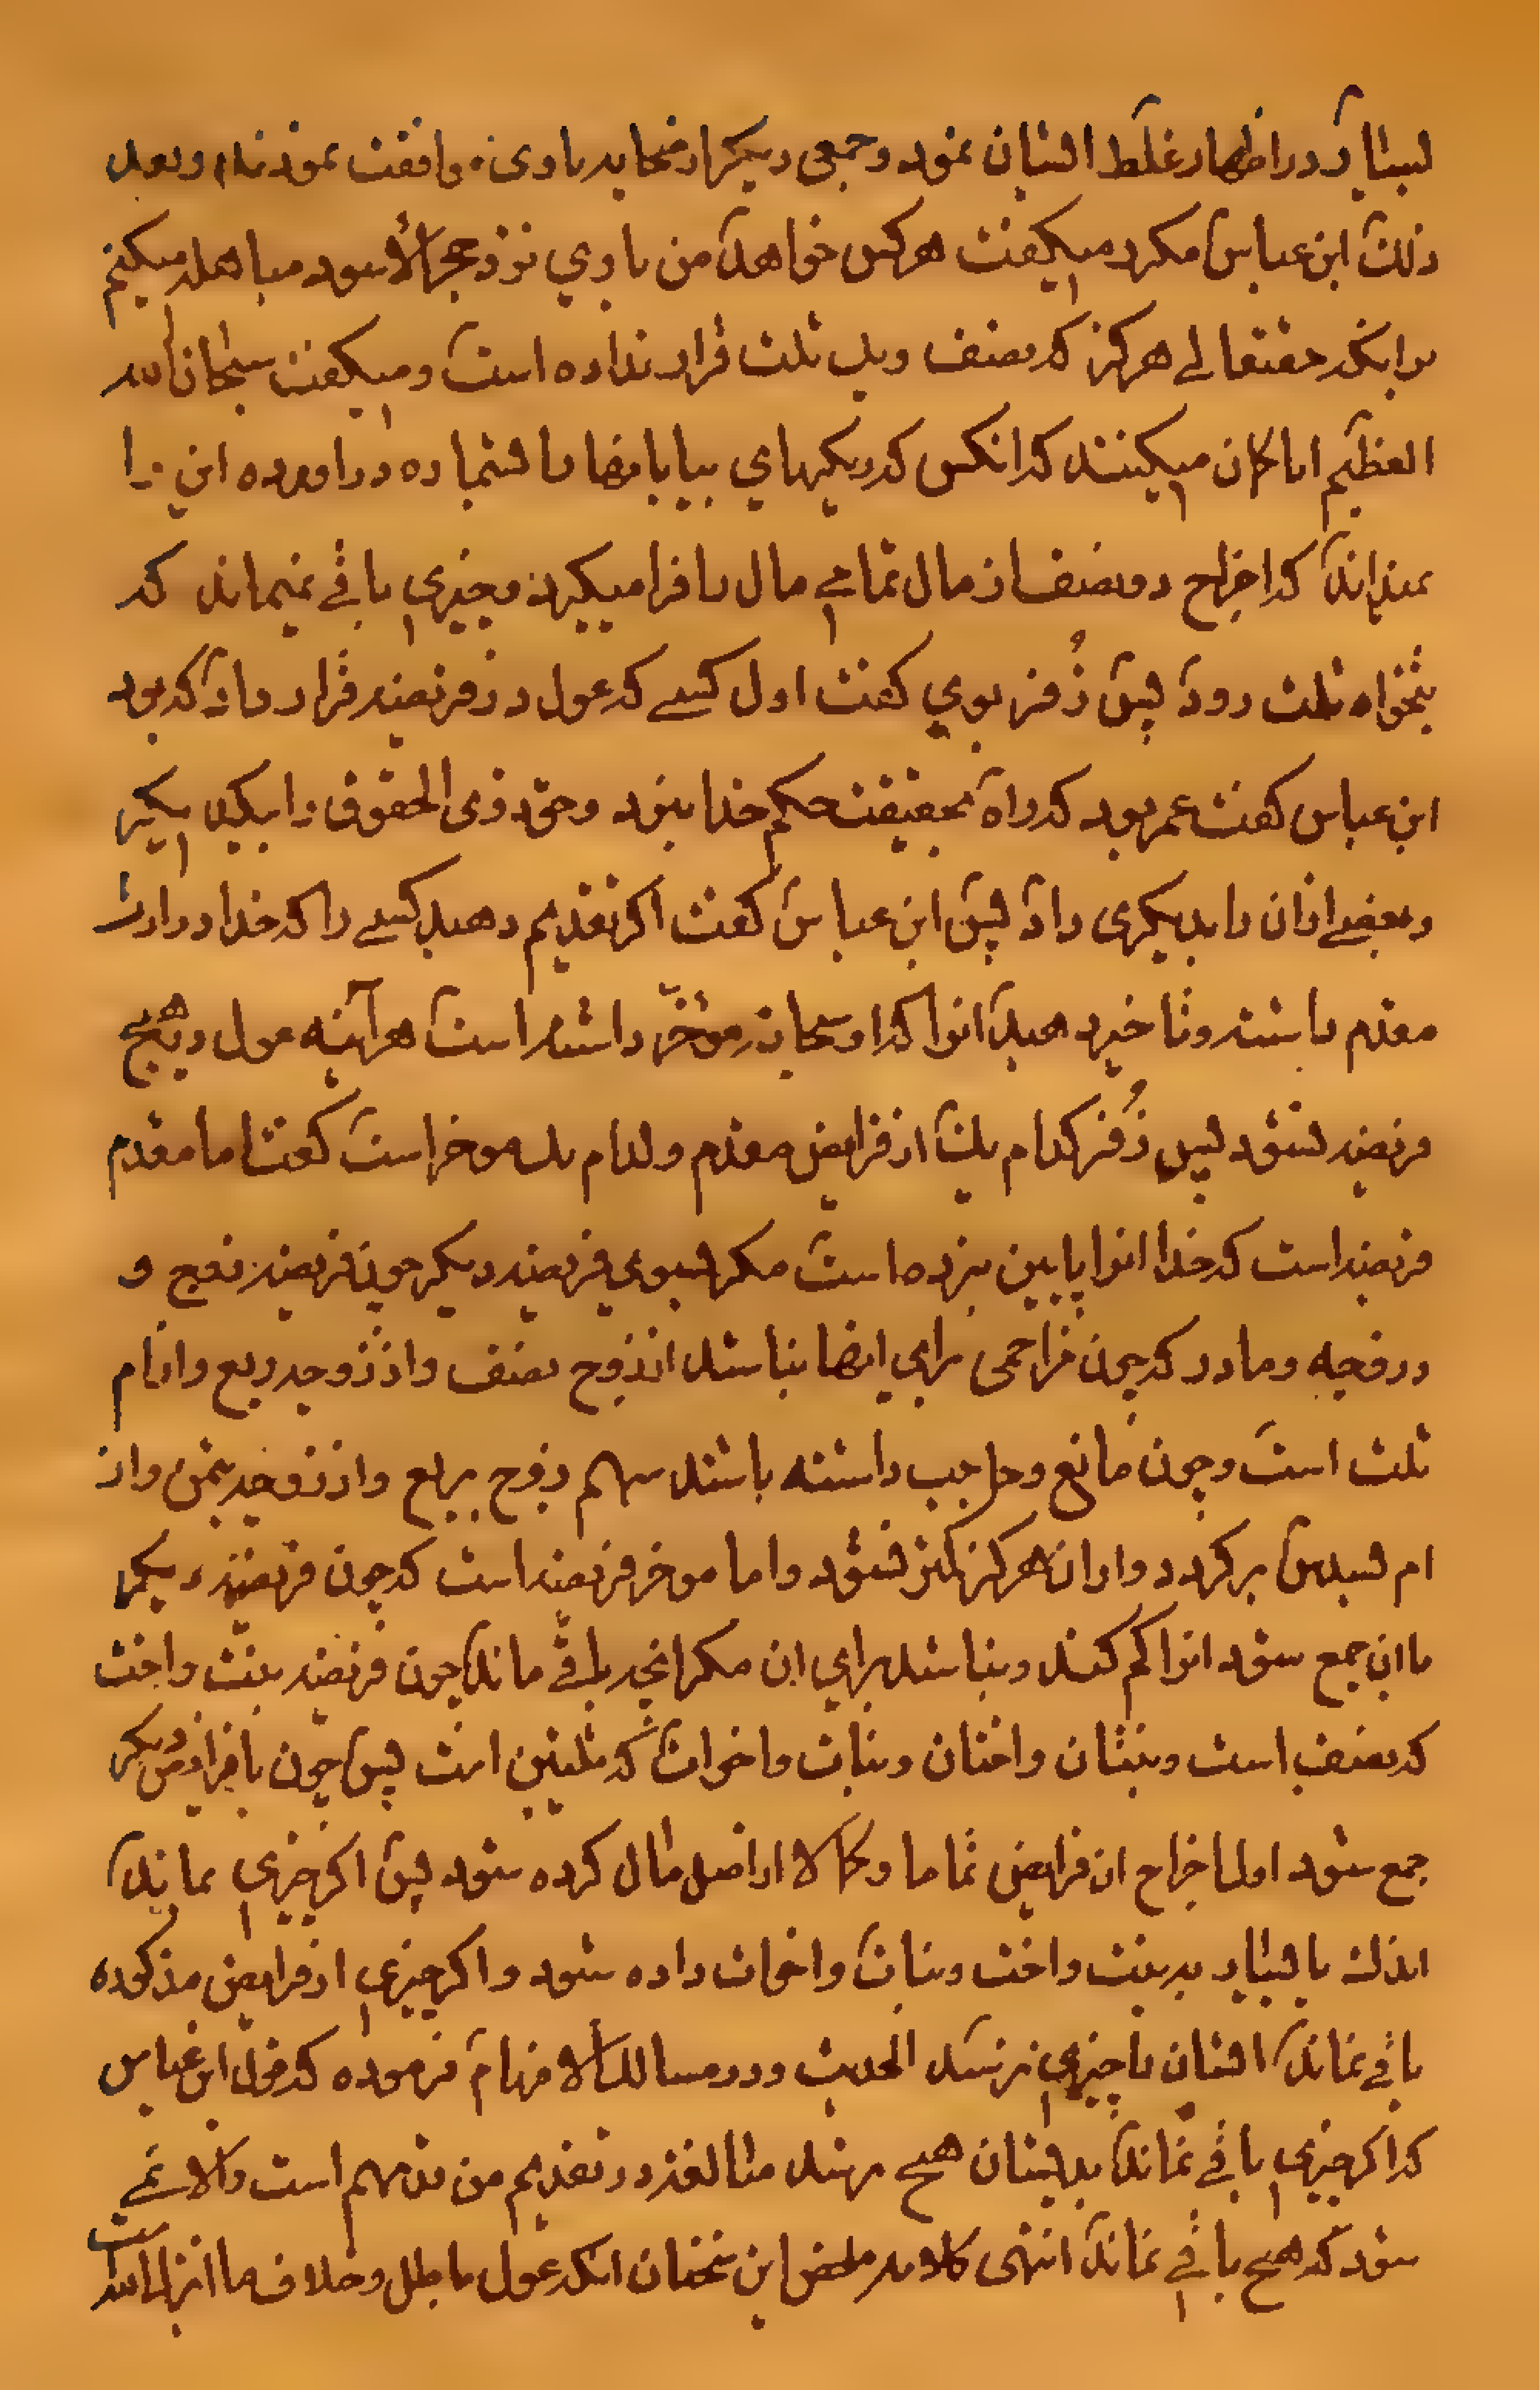 بسیار در اظهار غلط ایشان نمود و جمعی دیگر از صحابه با وی موافقت نمودند و بعد
ذلك ابن عباس مکرر میکفت هرکس خواهد من با وي نزد حجر الأسود مباهله میکنم
برانکه حقتعالی هرکز که نصف ویك ثلث قرار نداده است ومیکفت سبحان الله
العظیم ایا کمان میکنند که انکس که ریکهاي بیابانها را شماره دراورده این را
نمیداند که اخراج دو نصف از مال تمامي مال را فرا میکیرد وچیزي باقی نمیماند که
بتخواه ثلث رود پس زُفر بوي کفت اول کسی که عول در فریضه قرار داد که بود
ابن عباس کفت عمر بود که راه بحقیقت حکم خدا نبرد وحق ذوی الحقوق را بیکدیکر
وبعضی ازان را بدیکری داد پس ابن عباس کفت اکر تقدیم دهید کسی را که خدا در ارث
مقدم داشته وتاخیر دهید انرا که او سبحانه مؤخّر داشته است هرآینه عول در هیچ
فریضه نشود پس زُفر کدام یك از فرایض مقدم وکدام یك موخر است کفت اما مقدم
فریضه است که خدا انرا پایین نبرده است مکر بسوي فریضه دیکر چون فریضه زوج و
زوجه ومادر که چون مزاحمی براي اینها نباشد از زوج نصف واز زوجه ربع واز ام
ثلث است وچون مانع وحاجب داشته باشد سهم زوج بربع واز زوجه بثمن واز
ام بسدس برکردد وازان هرکز کمتر نشود واما موخر فریضه است که چون فریضه دیکر
با ان جمع شود انرا کم کند ونباشد براي ان مکر انچه باقی ماند چون فریضه بنت واخت
که نصف است وبنتان واختان وبنات واخوات که ثلثین است پس چون با فرایض دیکر
جمع شود اولا اخراج ان فرایض تماما وکمالا از اصل مال کرده شود پس اکر چیزي بماند
اندك یا بسیار به بنت واخت وبنات واخوات داده شود واکر چیزي از فرایض مذکوره
باقی نماند ایشان را چیزي نرسد الحدیث ودر مسالك الافهام فرموده که قول ابن عباس
که اکر چیزي باقی نماند بدیشان هیچ نرسد مبالغه در تقدیم من قدمهم است والا نمی
شود که هیچ باقی نماند انتهی کلامه ملخص این سخنان انکه عول باطل وخلاف ما انزل الله است